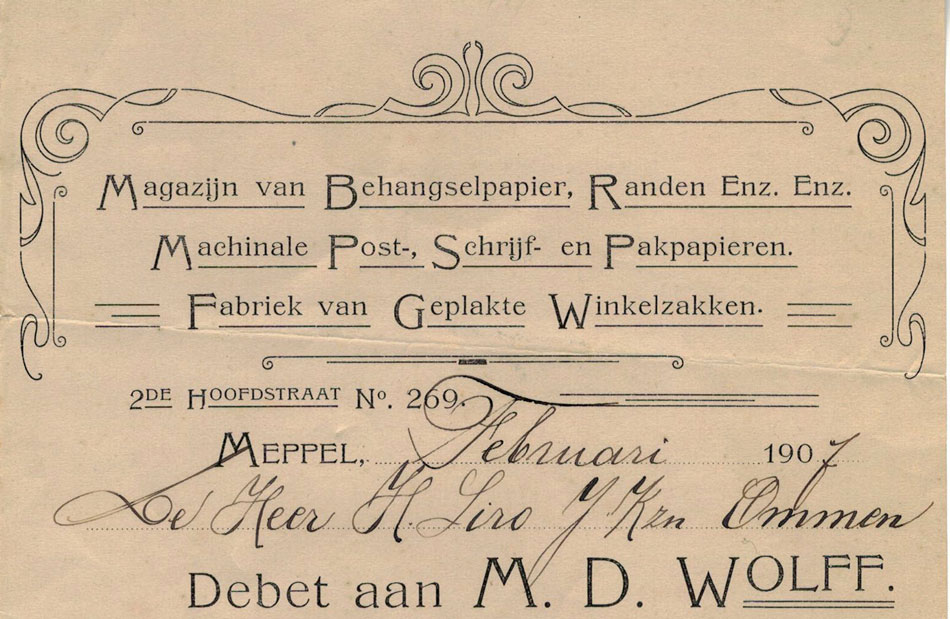 Magazijn van Behangselpapier, Randen Enz. Enz.
Machinale Post-, Schrijf- en Pakpapieren.
Fabriek van Geplakte Winkelzakken.
2DE HOOFDSTRAAT No. 269.
MEPPEL, Februari 1907
De Heer H. Siro J Kzn Ommen
Debet aan M. D. WOLFF.